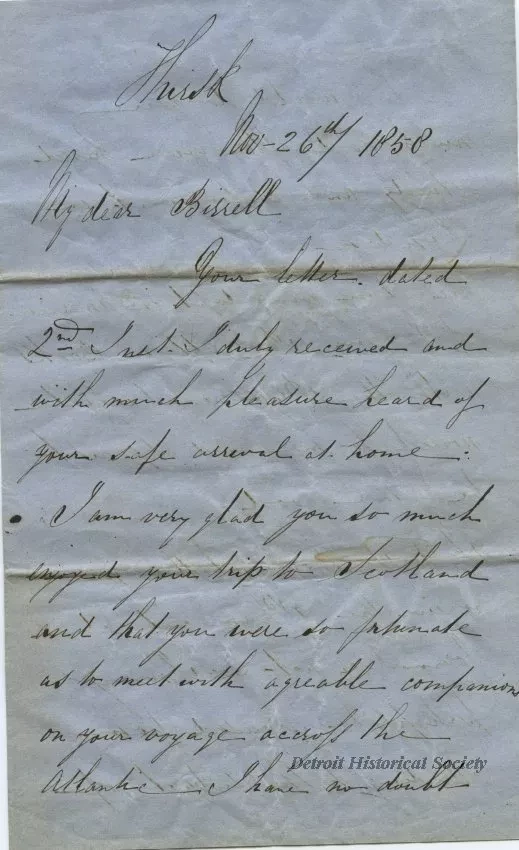 Thirsk
Nov- 26th/ 1858
My dear Bissell
Your letter dated
2nd Inst. I duly received and
with much pleasure heard of
your safe arrival at home.
I am very glad you so much
enjoyed your trip to Scotland
and that you were so fortunate
as to meet with agreable companions
on your voyage accross the
Detroit Historical Society
Atlantic. I have no doubt